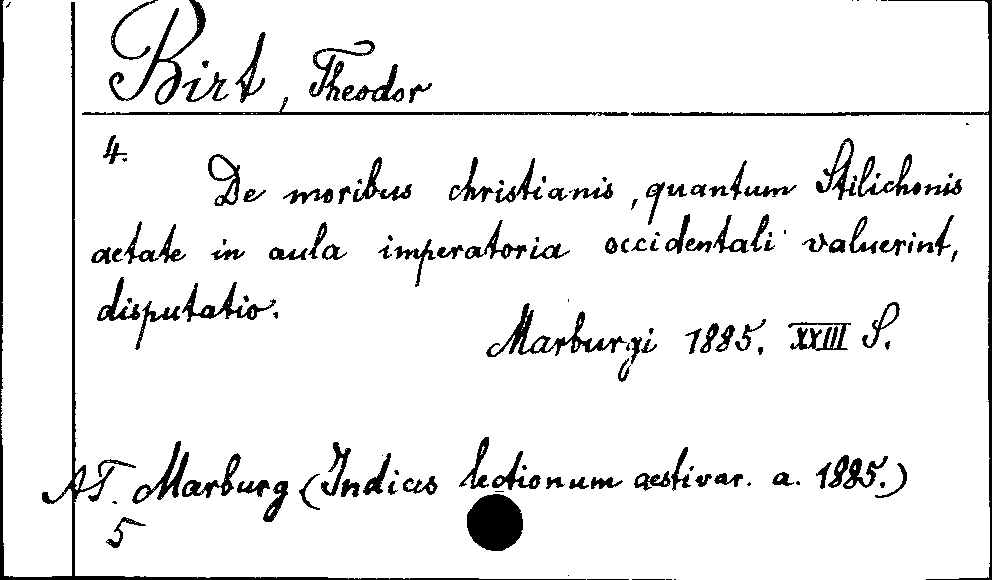 Birt, Theodor
4.
De moribus christianis, quantum Stilichonis
aetate in aula imperatoria occidentali valuerint,
disputatio.
Marburgi 1885. XXIII S.
AT. Marburg (Indices lectionum aestivar. a. 1885.)
5